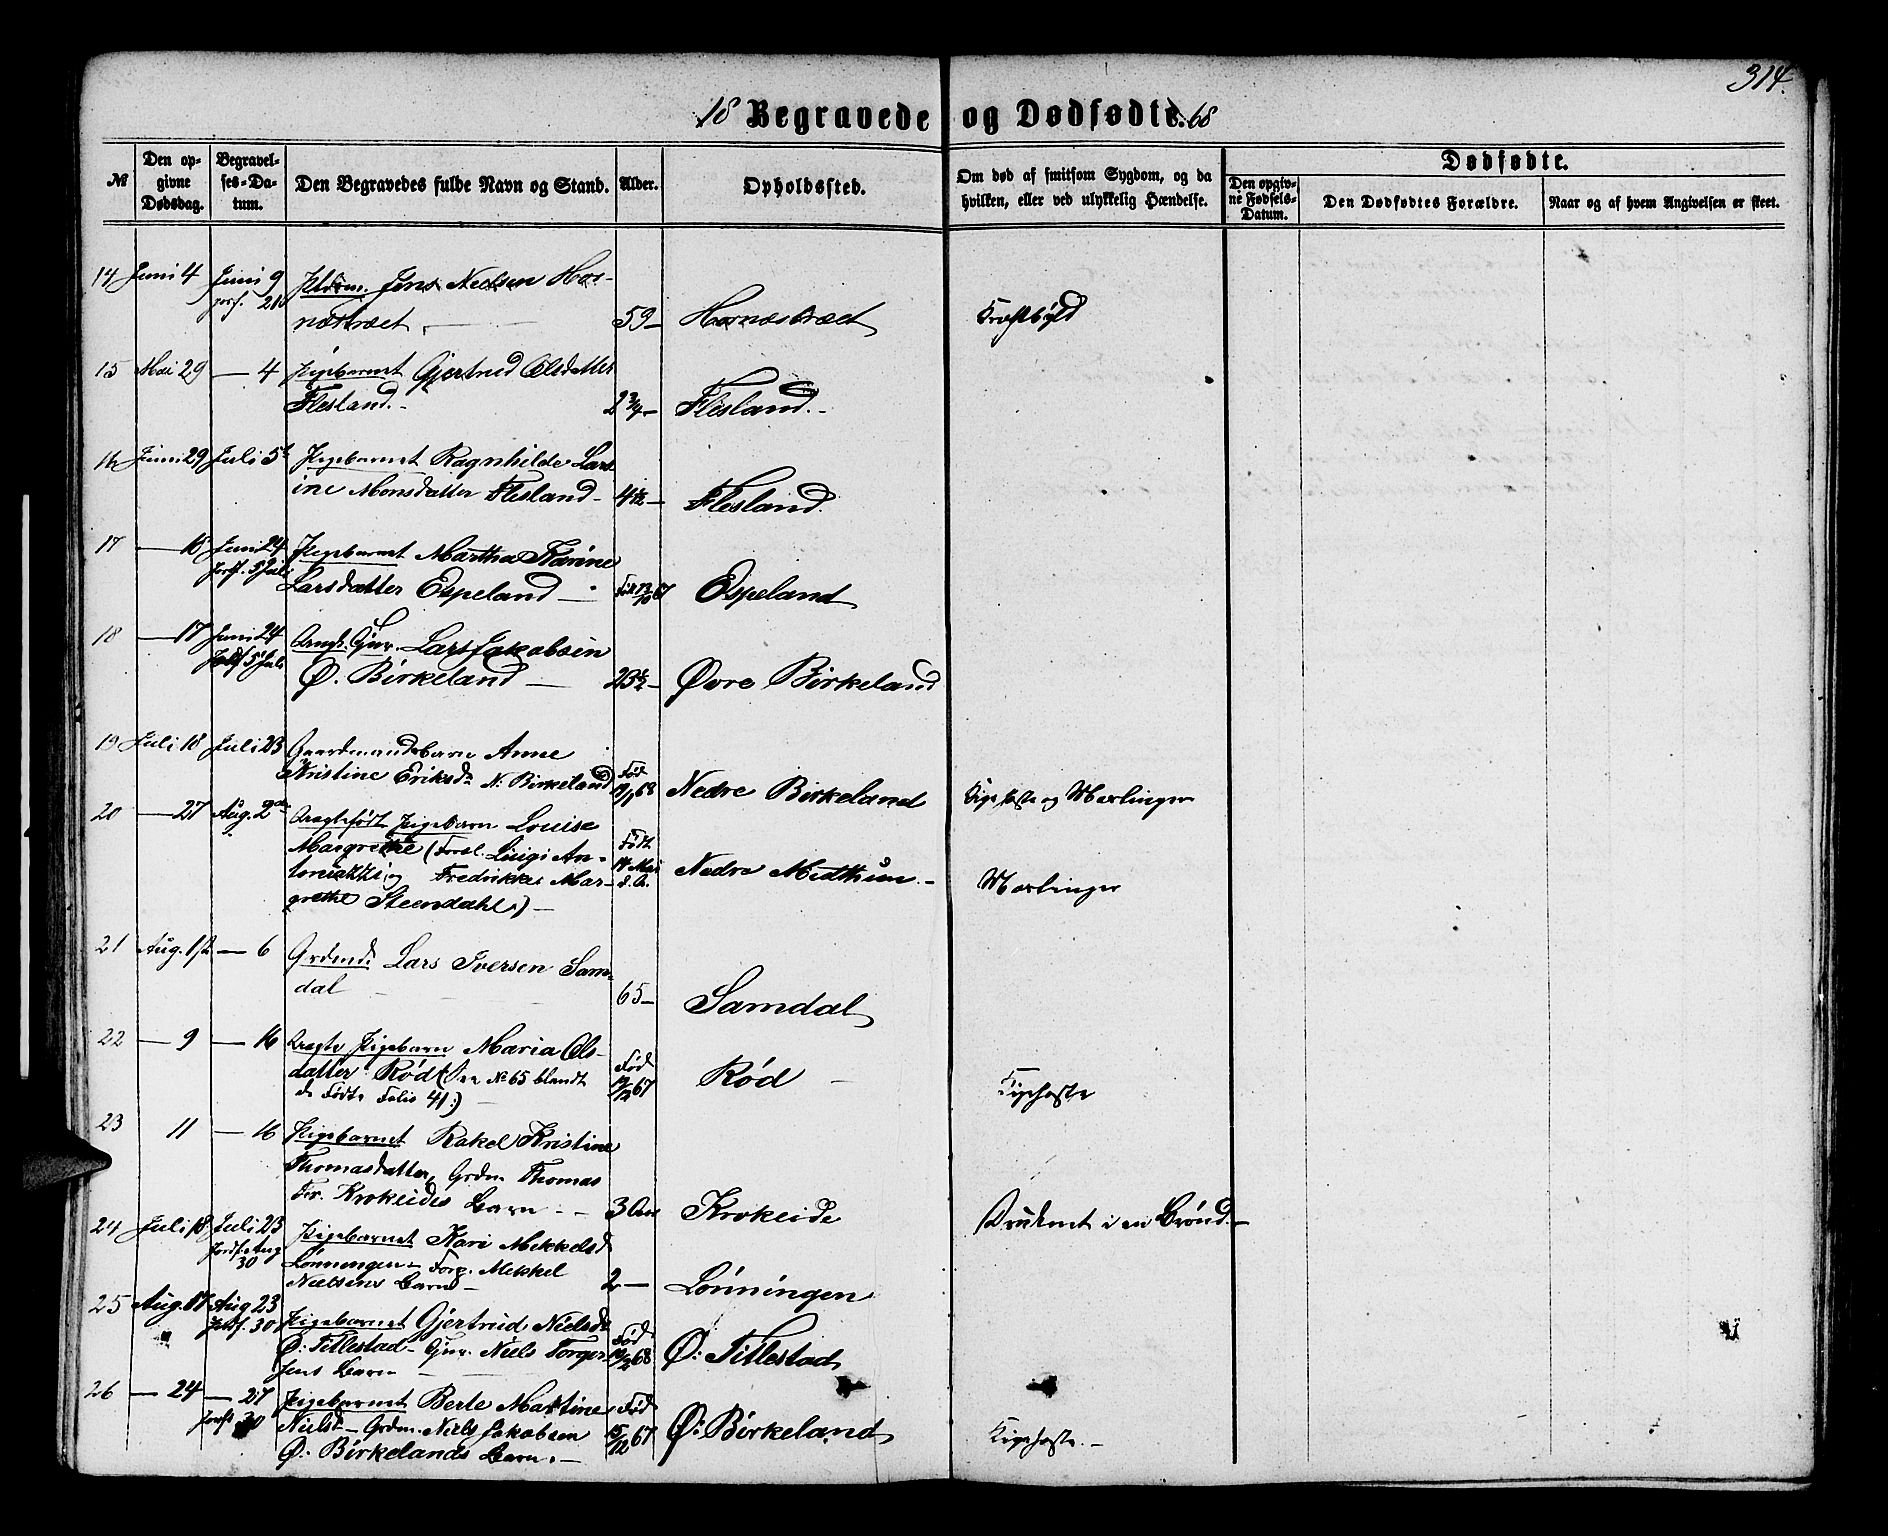 314.
18 Begravede og Dødfødte. 68
№
Den opgivne Dødsdag.
Begravelses-Datum.
Den Begravedes fulde Navn og Stand.
Alder.
Opholdssted.
Om død af smitsom Sygdom, og da hvilken, eller ved ulykkelig Hændelse.
Dødfødte.
Den opgivne Fødsels-Datum.
Den Dødfødtes Forældre.
Naar og af hvem Angivelsen er skeet.
14 Juni 4 Juni 9 Jens Nielsen Hor-
næstræet 59 Hornæstræet Kræftbyld
15 Mai 29 — 4 Pigebarnet Gjertrud Olsdatter
Flesland. 2 3/4 Flesland.
16 Juni 29 Juli 5t Pigebarnet Ragnhilde Lars
ine Monsdatter Flesland Flesland.
17 — 16 Juni 24 Pigebarnet Martha Karine
Jordf. 5 Juli Larsdatter Espeland 67 Espeland
18 — 17 Juni 24 Lars Jakobsen
Jordf 5 Juli Ø. Birkeland 23 1/2 Øvre Birkeland
19 Juli 18 Juli 23 Gaardmandsbarn Anne
Kristine Eriksd. N. Birkeland Fød 68 Nedre Birkeland Kighoste og Mæslinger
20 — 27 Aug. 2den Uægtefødt Pigebarn Louise
Margrethe (Foræl. Luigi An-
og Fredrikke Mar-
grethe Steendahl) Født 14 Mai d. A. Nedre Midthun Mæslinger
21 Aug. 1ste — 6 Grdmd. Lars Iversen Sam-
dal 65 Samdal
22 — 9 — 16 Uægte Pigebarn Maria Ols-
datter Rød (See № 65 blandt
de Fødte Folio 41) Fød 67 Rød Kighoste
23 11 — 16 Pigebarnet Rakel Kristine
Thomasdatter, Grdm. Thomas
Krokeides Barn 3 Krokeide Druknet i en Brønd.
24 Juli 18 Juli 23 Pigebarnet Kari Mikkelsd
Jordf. Aug 30 Lønningen Mikkel
Nielsens Barn 2 — Lønningen
25 Aug. 17 Aug 23 Pigebarnet Gjertrud Nielsd.
Jordf. 30 Ø. Titlestad Niels Torger-
sens Barn Fød 68 Ø: Titlestad
26 — 24 — 27 Pigebarnet Berte Martine
Jordf 30 Nielsd — Grdm. Niels Jakobsen
Ø. Birkelands Barn. Fød 15/12 67 Ø: Birkeland Kighoste.